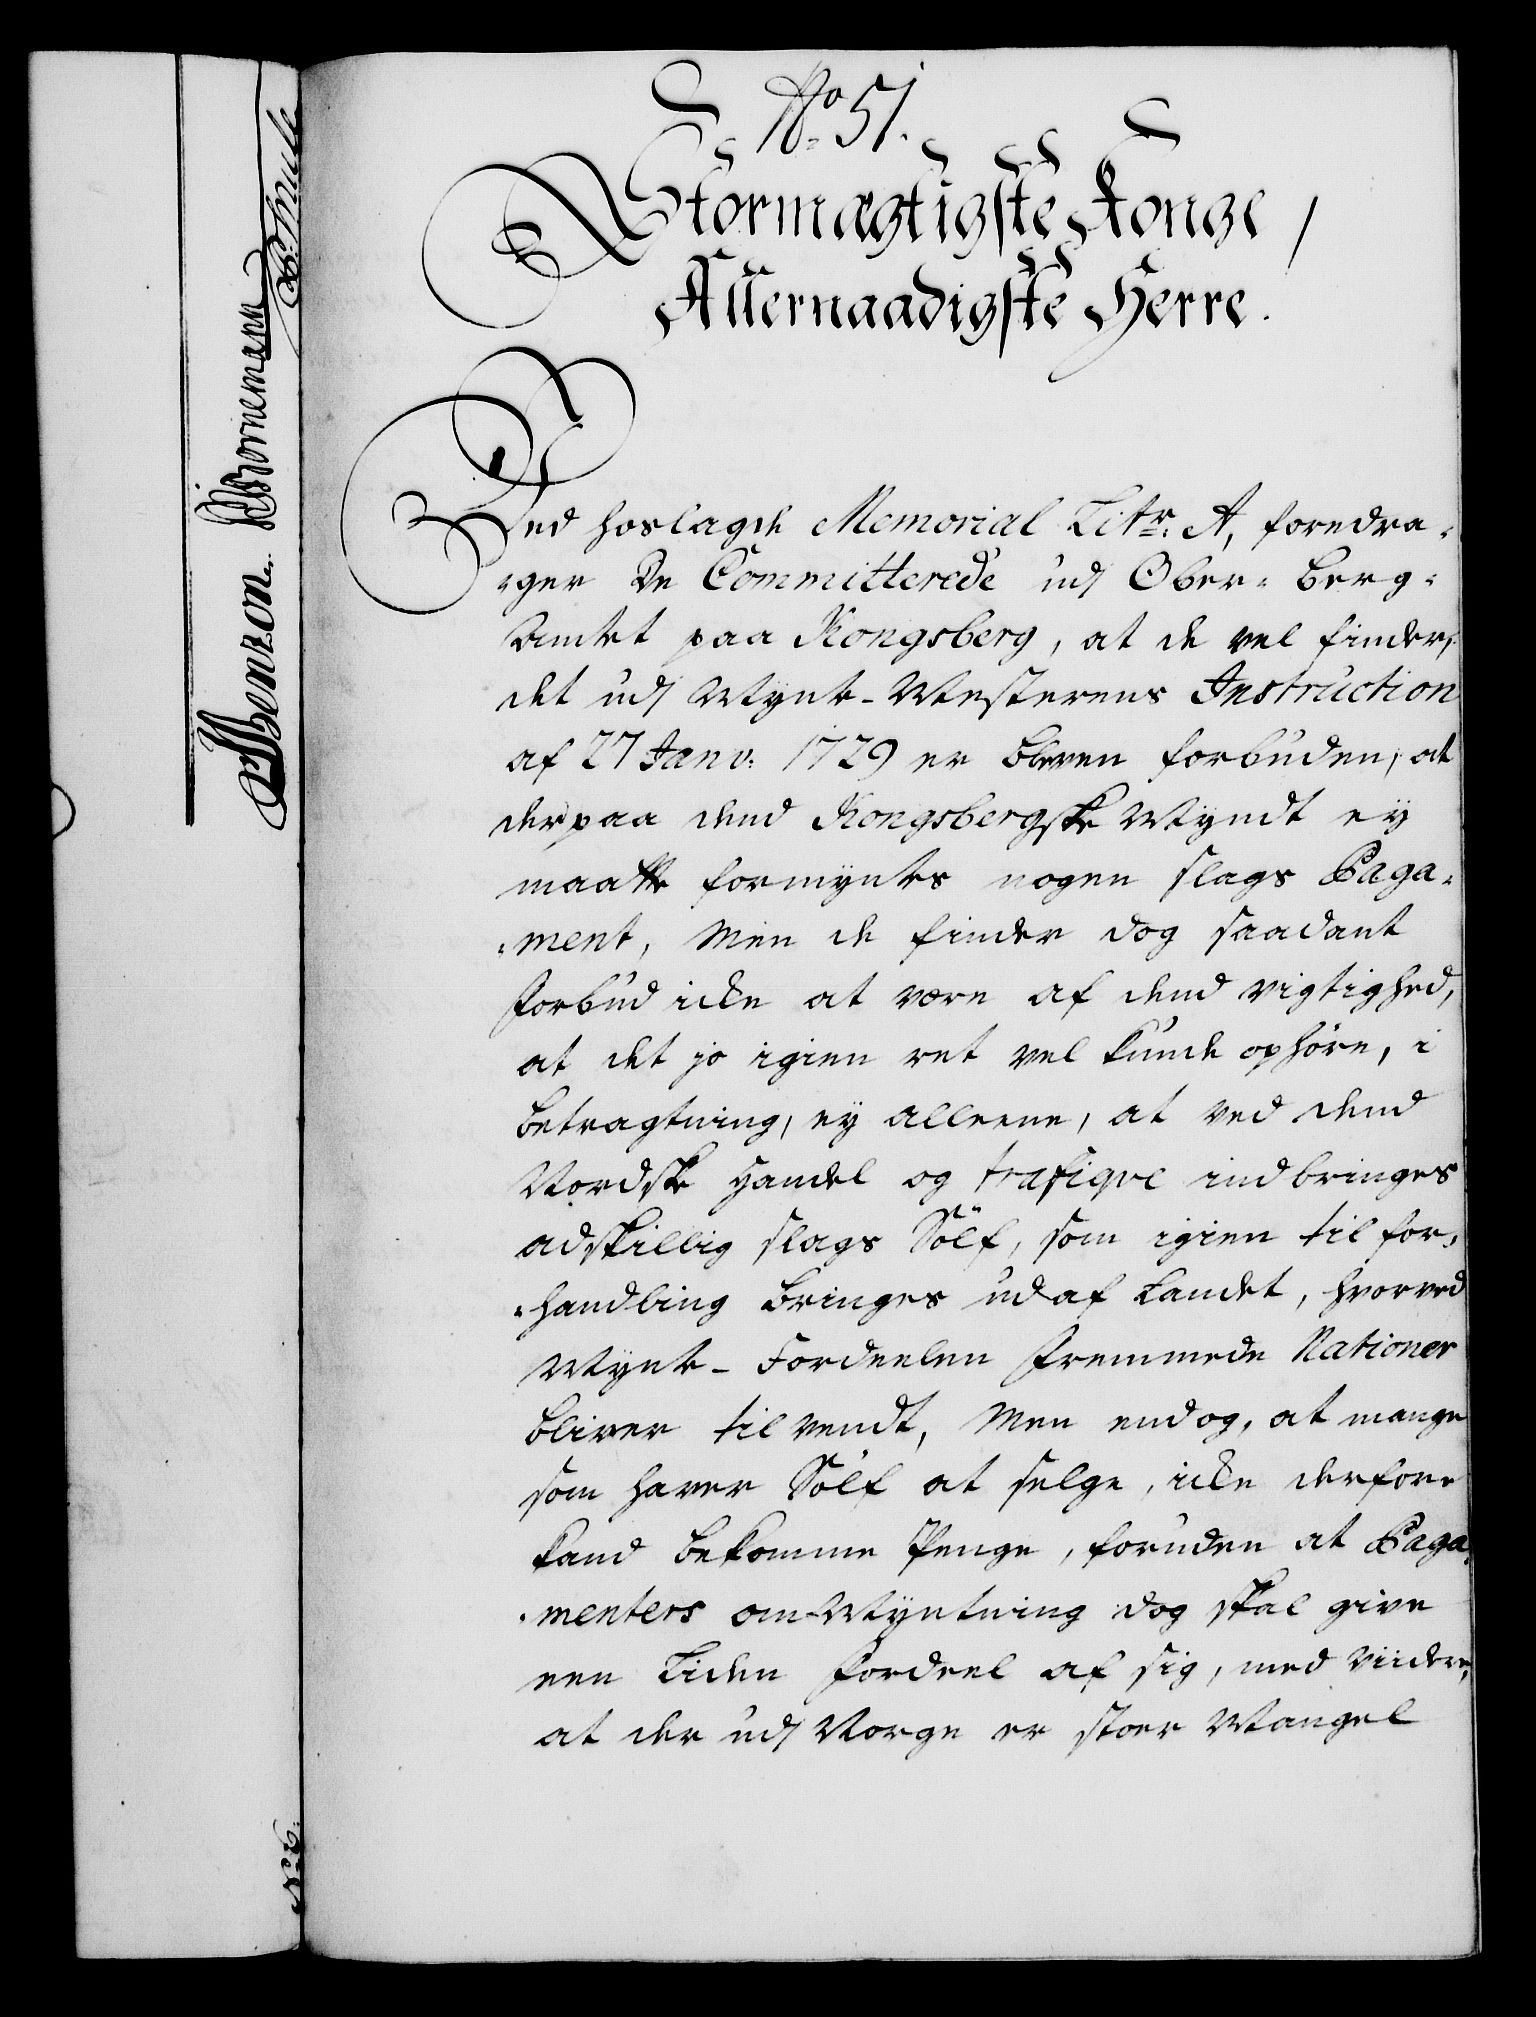 No. 51.
Stormægtigste Konge /
Allernaadigste Herre.
Ved hoslagde Memorial Litr. A, foredra-
-ger De Committerede udj Ober-Berg-
Amtet paa Kongsberg, at de vel finder,
det udj Mynt-Mesterens Instruction
af 27 Janv: 1729 er bleven forbuden, at
der paa dend Kongsbergske Myndt ey
maatte formyntes nogen slags Paga-
-ment, Men de finder dog saadant
Forbud icke at være af dend vigtighed,
at det jo igien ret vel kunde ophöre, i
betragtning, ey alleene, at ved dend
Nordske Handel og trafiqve indbringes
adskillig slags Sölf, som igien til for-
-handling bringes ud af Landet, hvorved
Mynt-Fordeelen Fremmede Nationer
bliver tilvendt, Men endog, at mange
som haver Sölf at selge, icke derfore
kand bekomme Penge, foruden at Paga-
-menters om-Myntning dog skal give
een Liden Fordeel af sig, med Viidere,
at der udj Norge er stoer Mangel
Benzon.
Bornemann
No. 6.